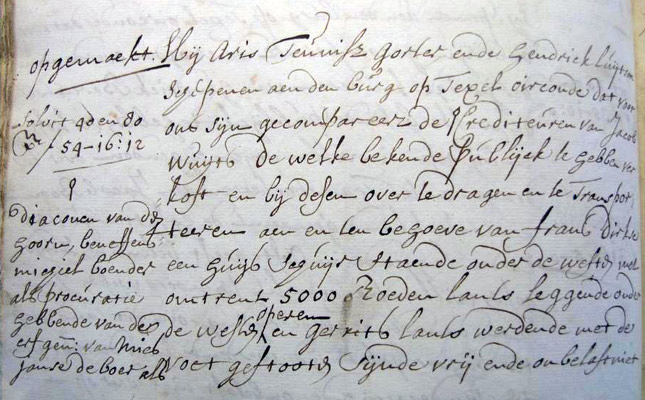 opgemaekt.
Solvit 4 den 80
54-16:12
diaconen van de
hoorn, beneffens
miegiel boender
als procuratie
hebbende van de
erfgen: van
Janse de boer als
Wij Aris Teunisz gorter ende Hendrick Luijtsen
Schepenen aen den burg op Texel oirconde dat voor
ons sijn gecompareert de Crediteuren van Jacob
Wuijts de welke bekende publijck te hebben ver
koft en bij desen over te dragen en te Transpor
teeren aen en ten behoeve van frans Dirkse
een huijs Schuijr staende onder de westen met
omtrent 5000 Roeden lants leggende onder
de westen operen en gerrits lants werdende met de
voet gestooten sijnde vrij ende onbelast niet